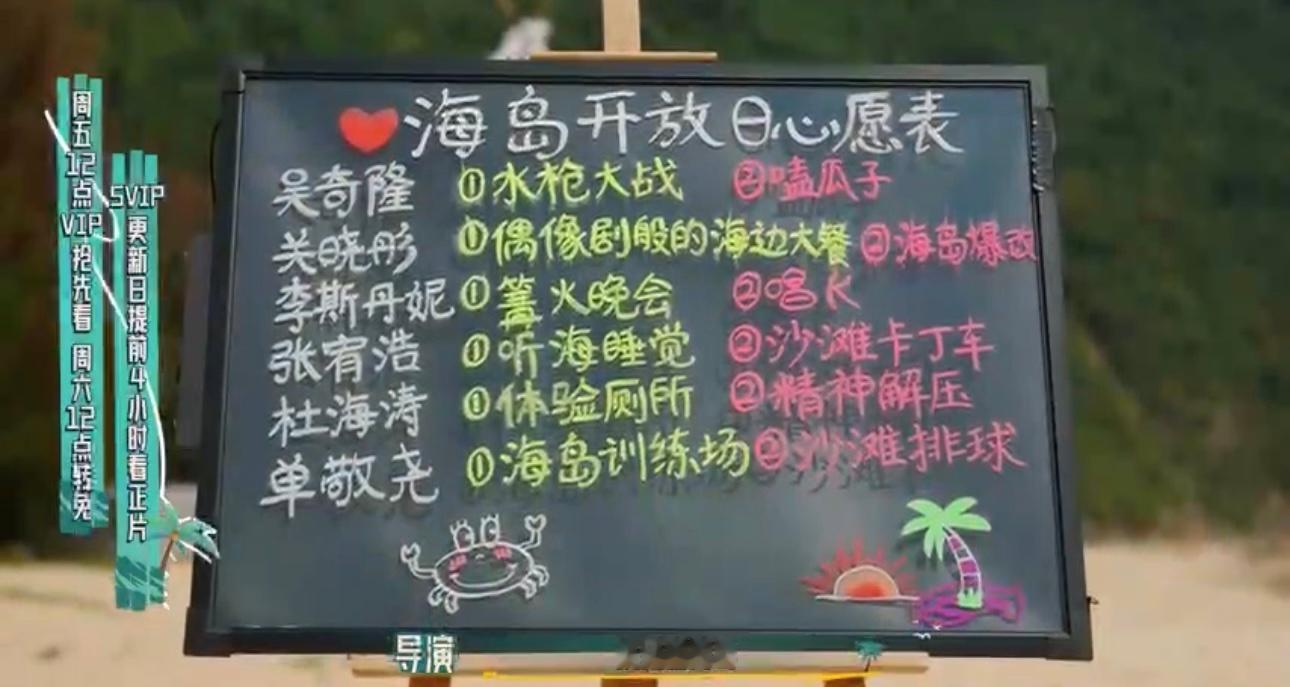 ❤海岛开放日心愿表
吴奇隆 ①水枪大战 ②嗑瓜子
关晓彤 ①偶像剧般的海边大餐 ②海岛爆改
李斯丹妮 ①篝火晚会 ②唱K
张宥浩 ①听海睡觉 ②沙滩卡丁车
杜海涛 ①体验厕所 ②精神解压
单敬尧 ①海岛训练场 ②沙滩排球
周五12点VIP抢先看 周六12点转免
SVIP更新日提前4小时看正片
导演